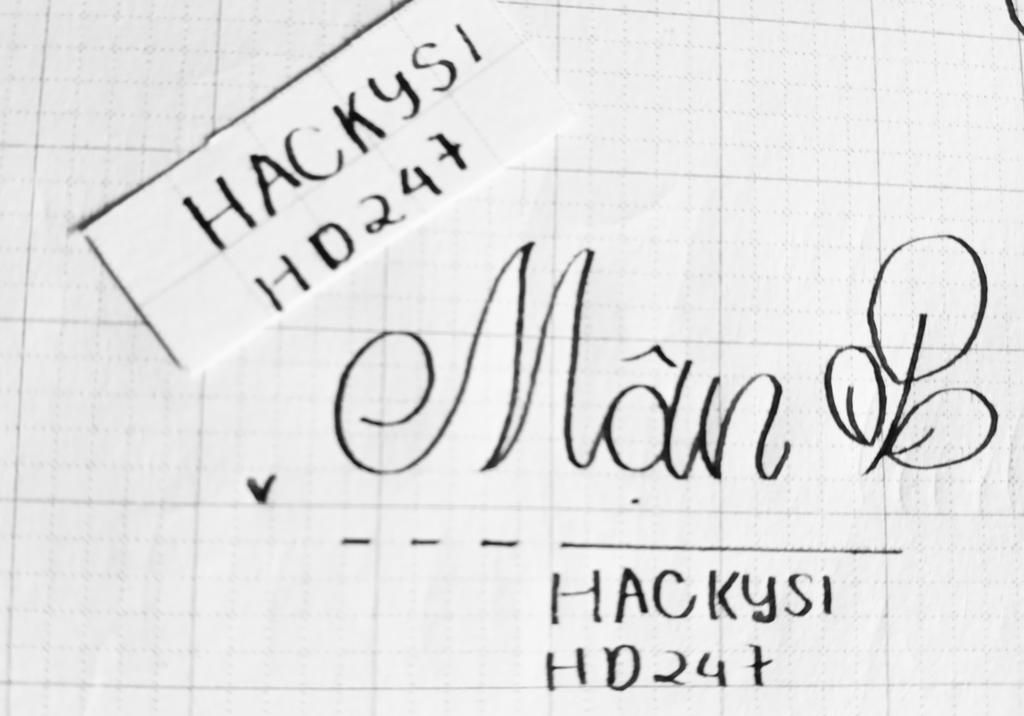 HACKYSI
HD247
Mận
HACKYSI
HD247